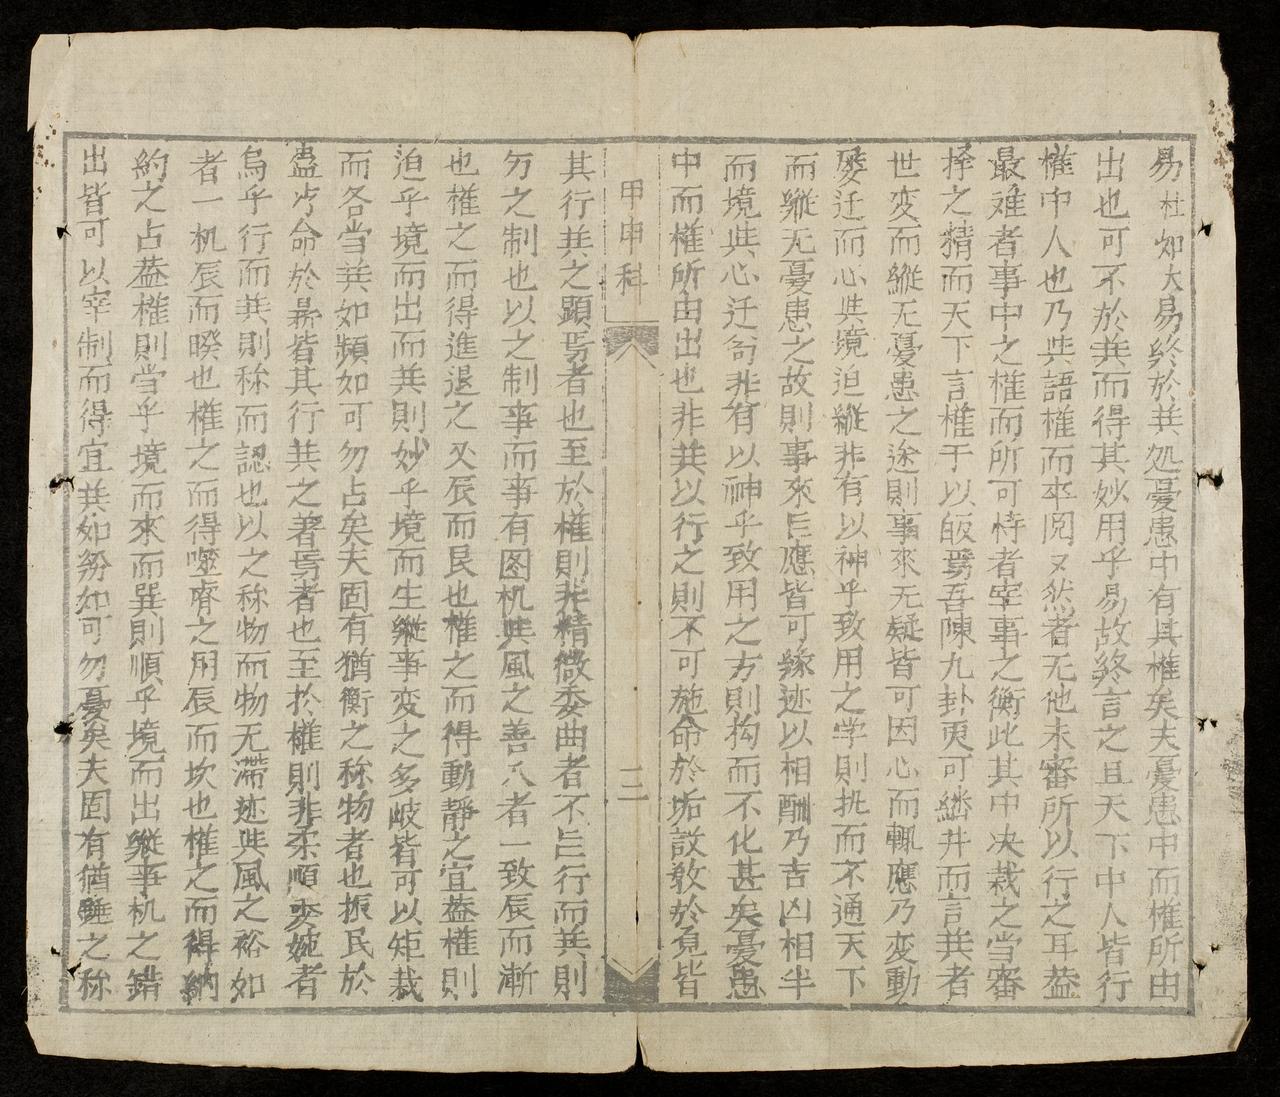 易杜知大易終於巽処憂患中有其權矣夫憂患中而權所由
出也可不於巽而得其妙用乎易故終言之且天下中人皆行
權中人也乃與語權而卒閔又然者无他未審所以行之耳盖
最难者事中之權而所可恃者宰事之衡此其中决裁之当審
择之精而天下言權于以皈焉吾陳九卦更可継井而言巽者
世变而縱无憂患之途則事來无疑皆可因心而輒應乃变動
屡迁而心與境迫縱非有以神乎致用之学則执而不通天下
而縱无憂患之故則事來㠯應皆可緣迹以相酬乃吉凶相半
而境與心迁苟非有以神乎致用之方則构而不化甚矣憂患
中而權所由出也非巽以行之則不可施命於垢設教於覔皆
甲申科
三
其行巽之顕焉者也至於權則非精微委曲者不㠯行而巽則
刃之制也以之制事而事有图机與風之善入者一致辰而漸
也權之而得進退之乆辰而艮也權之而得動静之宜盖權則
迫乎境而出而巽則妙乎境而生縱事变之多岐皆可以矩裁
而各当巽如頻如可勿占矣夫固有猶衡之称物者也振民於
蛊申命於鼎皆其行巽之著焉者也至於權則非柔順委婉者
烏乎行而巽則称而認也以之称物而物无滯迹與風之裕如
者一机辰而暌也權之而得噬嗑之用辰而坎也權之而得納
約之占盖權則当乎境而來而巽則順乎境而出縱事机之錯
出皆可以宰制而得宜巽如紛如可勿憂矣夫固有猶錘之称